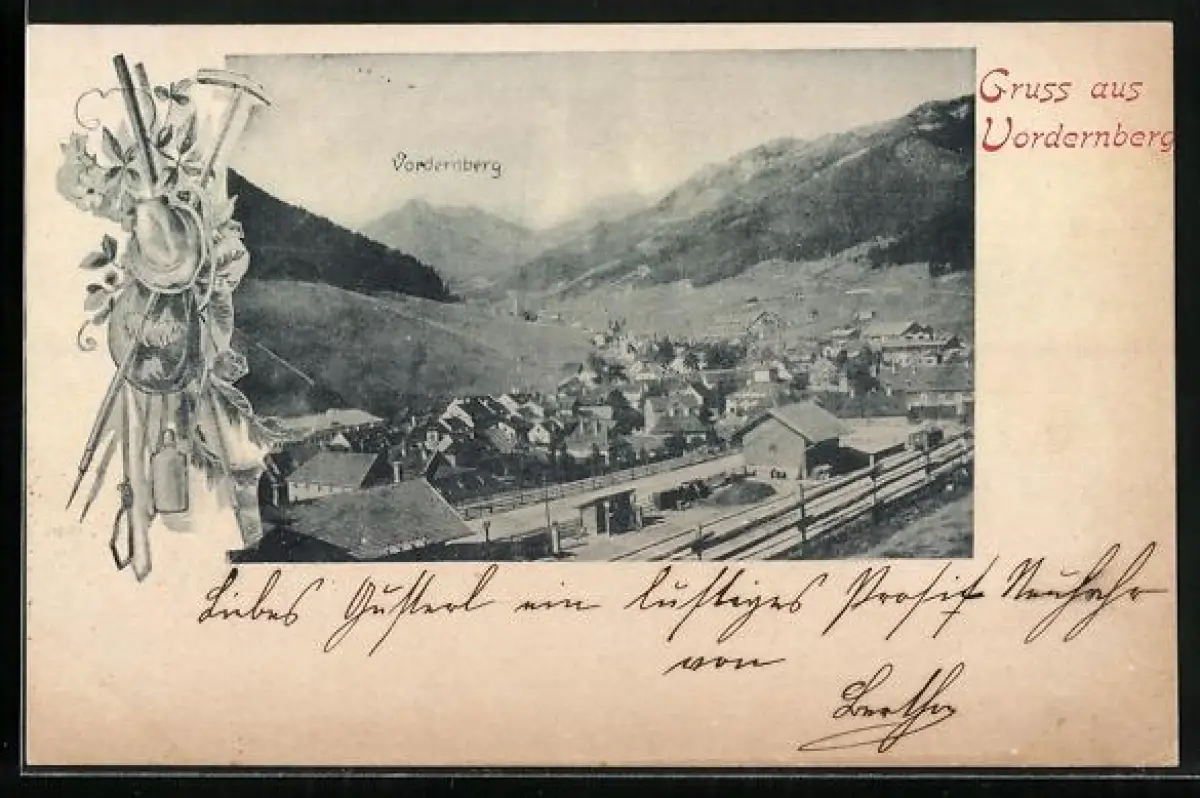 Gruss aus
Vordernberg
Vordernberg
Liebes Gusterl ein lustiges Prosit Neujahr
von
Bertha